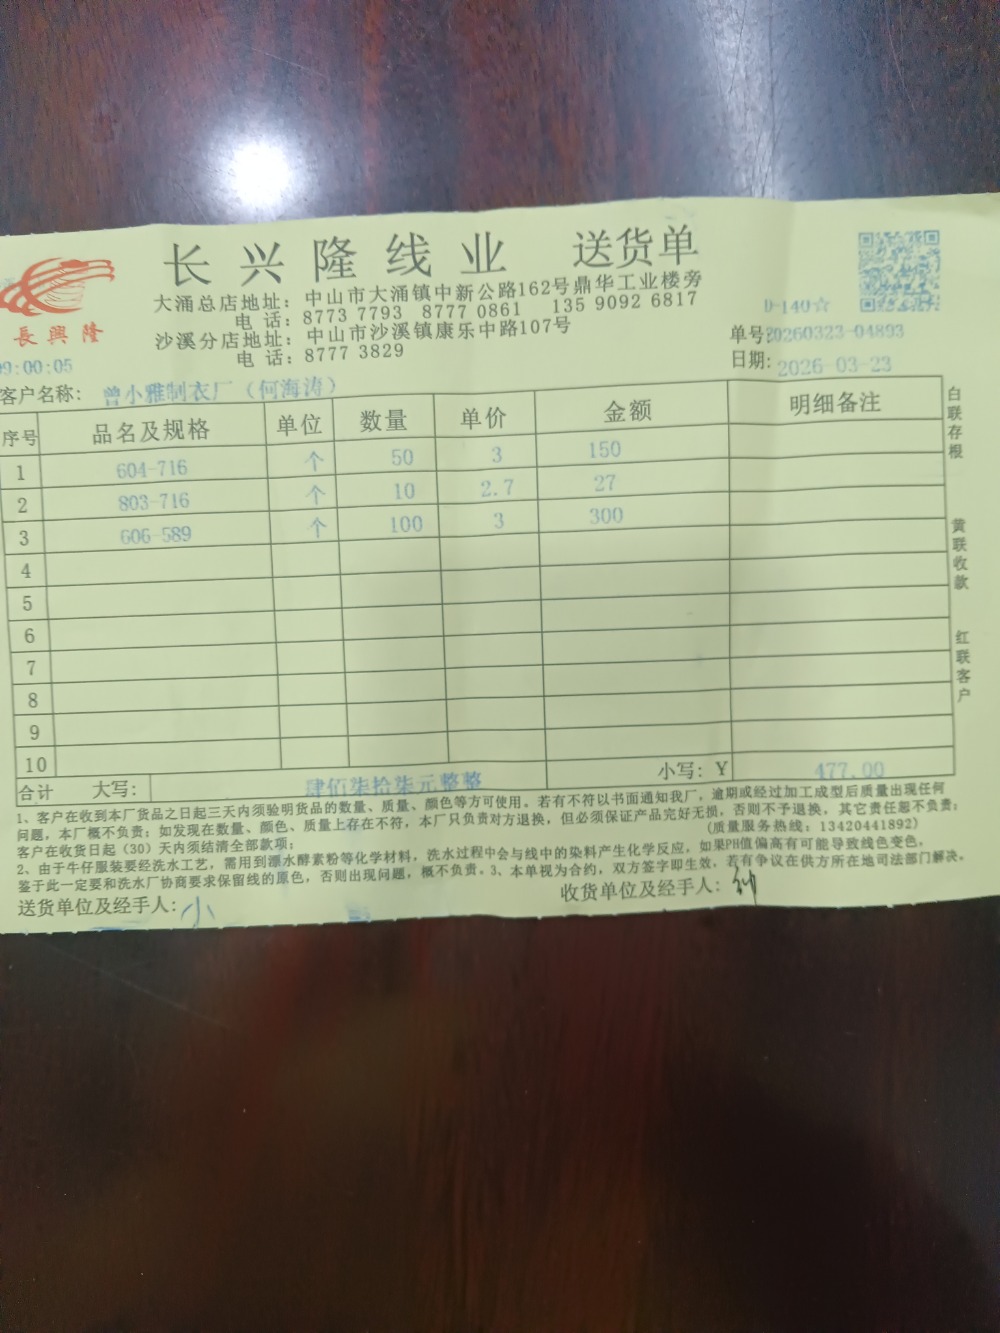 长兴隆线业 送货单
大涌总店地址：中山市大涌镇中新公路162号鼎华工业楼旁
电 话：8773 7793 8777 0861 135 9092 6817
沙溪分店地址：中山市沙溪镇康乐中路107号
电 话：8777 3829
長興隆
D-140☆
单号:20260323-04893
日期: 2026-03-23
09:00:05
客户名称: 曾小雅制衣厂（何海涛）
序号 品名及规格 单位 数量 单价 金额 明细备注
1 604-716 个 50 3 150
2 803-716 个 10 2.7 27
3 606-589 个 100 3 300
4
5
6
7
8
9
10
合计 大写: 肆佰柒拾柒元整整 小写: Y 477.00
白联存根
黄联收款
红联客户
1、客户在收到本厂货品之日起三天内须验明货品的数量、质量、颜色等方可使用。若有不符以书面通知我厂，逾期或经过加工成型后质量出现任何
问题，本厂概不负责；如发现在数量、颜色、质量上存在不符，本厂只负责对方退换，但必须保证产品完好无损，否则不予退换，其它责任恕不负责；
客户在收货日起（30）天内须结清全部款项； (质量服务热线: 13420441892)
2、由于牛仔服装要经洗水工艺，需用到漂水酵素粉等化学材料，洗水过程中会与线中的染料产生化学反应，如果PH值偏高有可能导致线色变色，
鉴于此一定要和洗水厂协商要求保留线的原色，否则出现问题，概不负责。3、本单视为合约，双方签字即生效，若有争议在供方所在地司法部门解决。
送货单位及经手人: 小 收货单位及经手人: